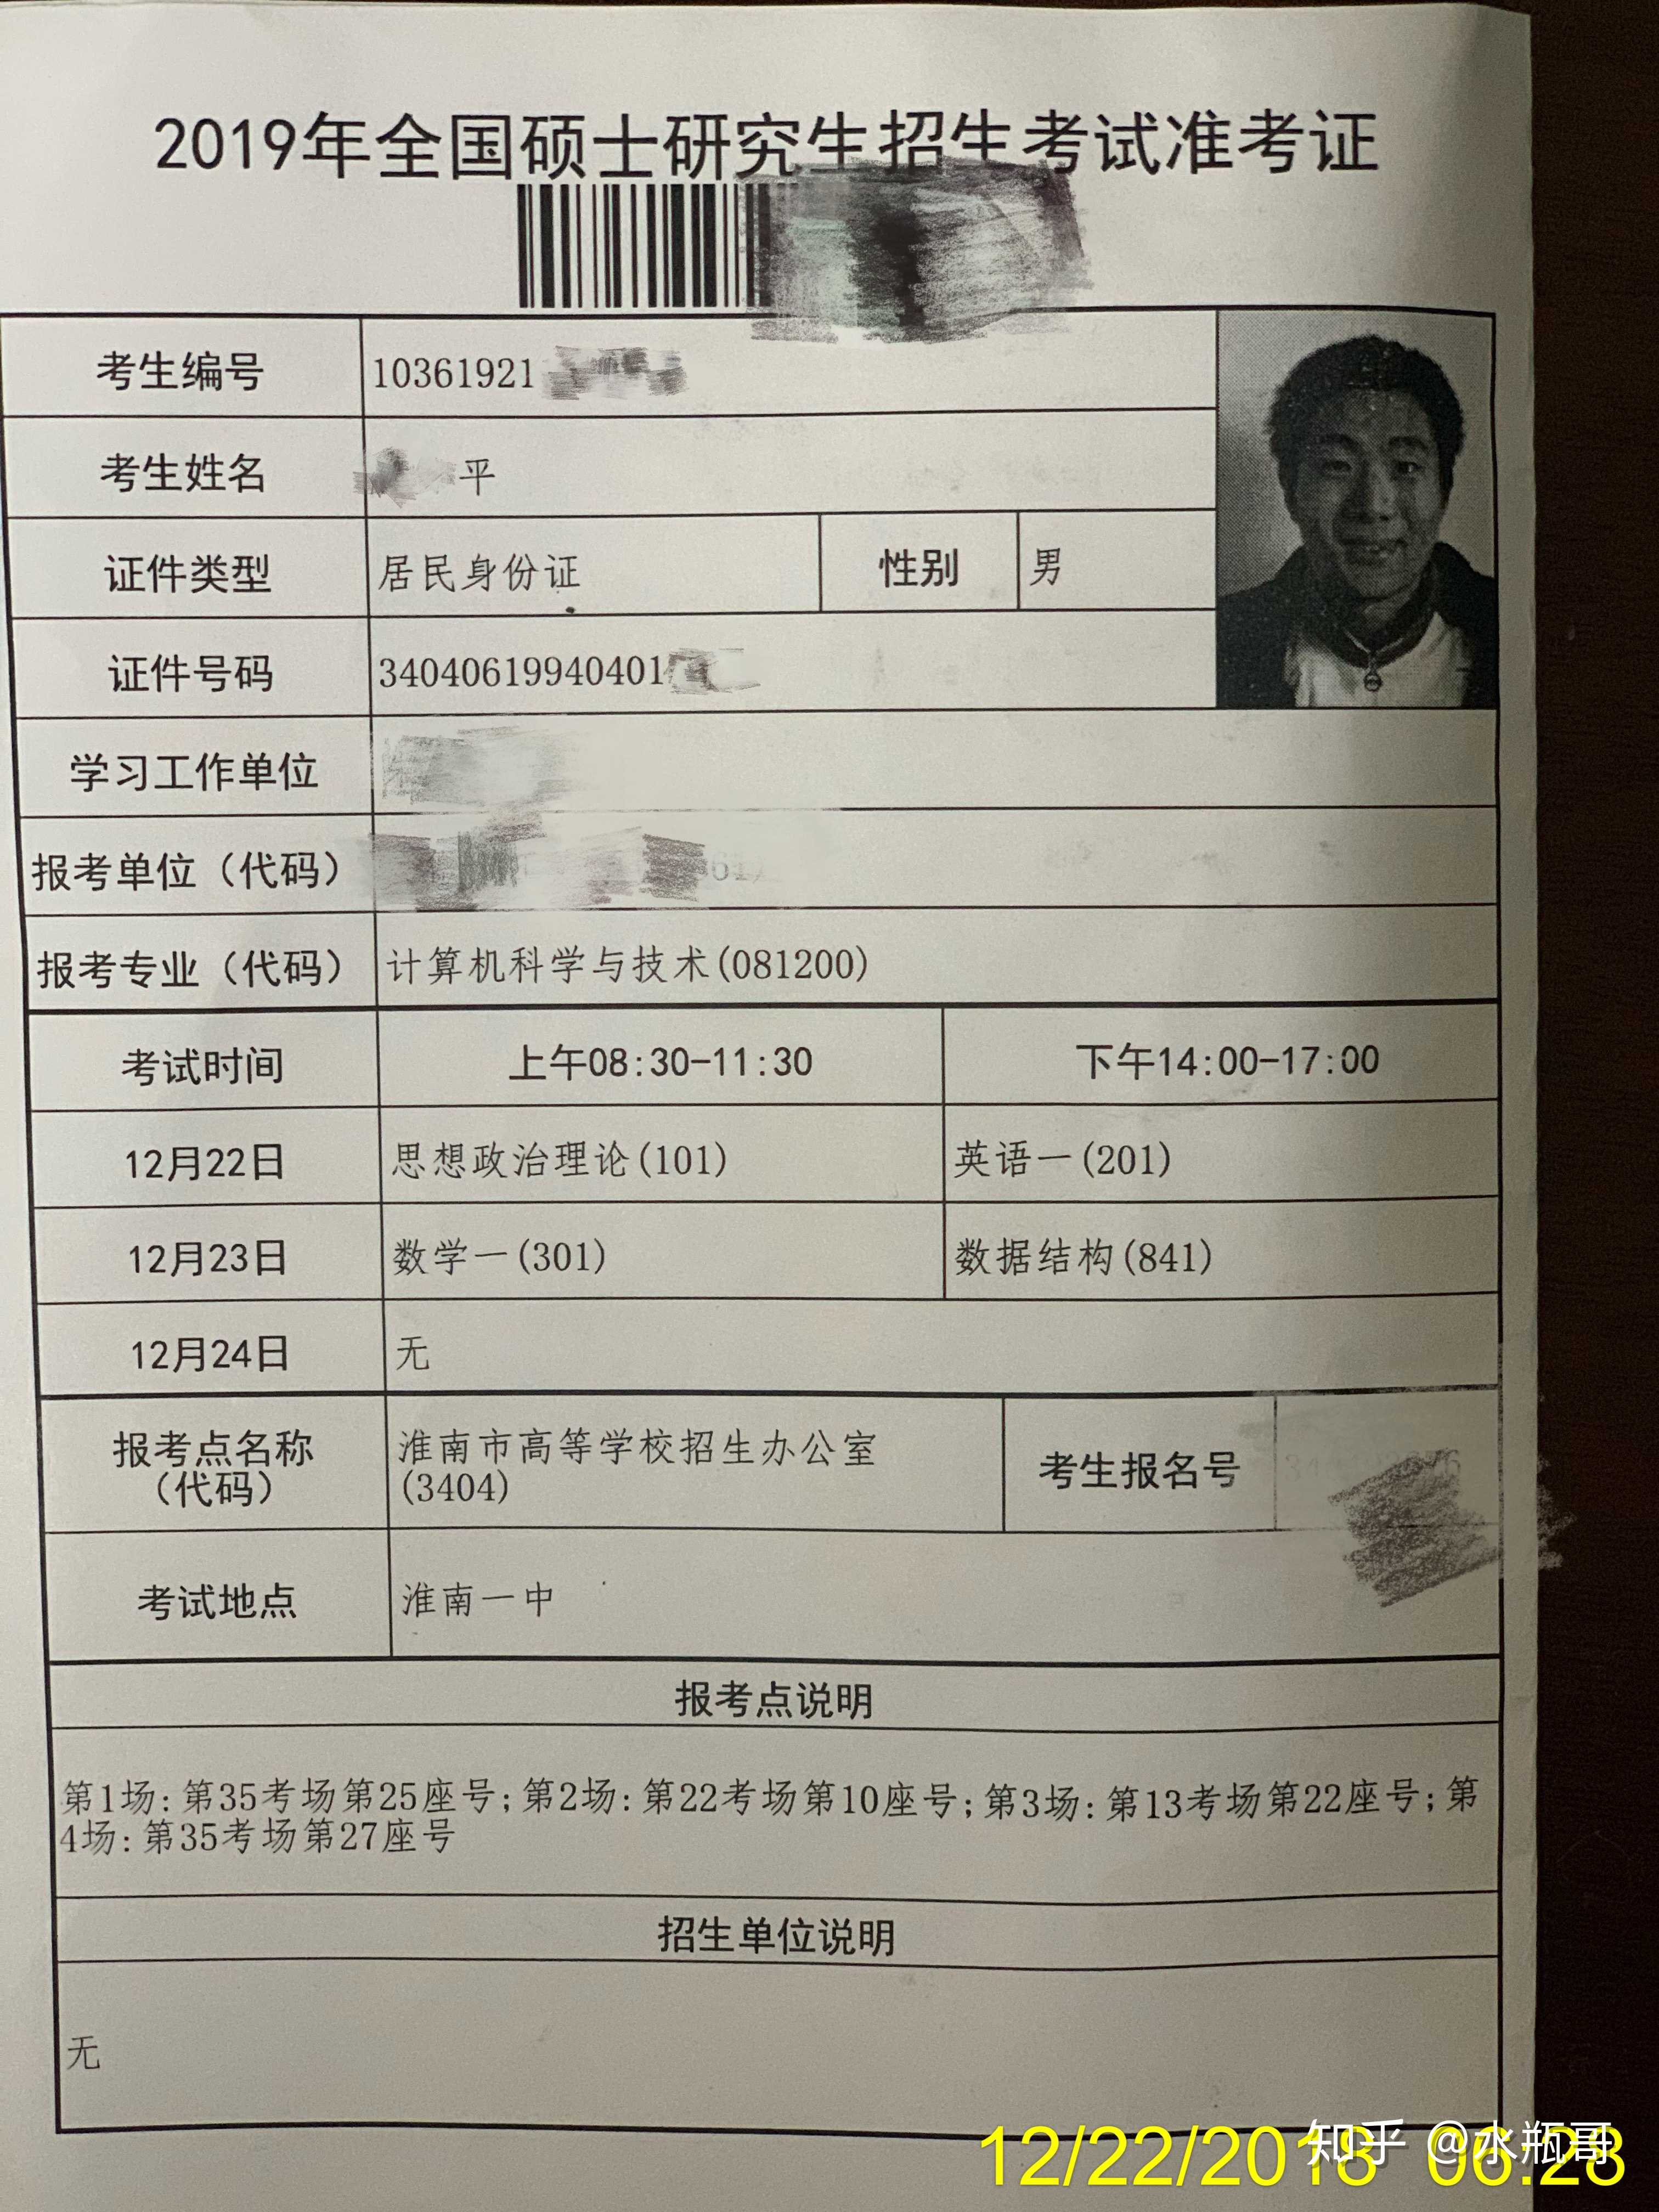 2019年全国硕士研究生招生考试准考证
考生编号 10361921
考生姓名 平
证件类型 居民身份证 性别 男
证件号码 34040619940401
学习工作单位
报考单位（代码）
报考专业（代码） 计算机科学与技术(081200)
考试时间 上午08:30-11:30 下午14:00-17:00
12月22日 思想政治理论(101) 英语一(201)
12月23日 数学一(301) 数据结构(841)
12月24日 无
报考点名称（代码） 淮南市高等学校招生办公室(3404) 考生报名号
考试地点 淮南一中
报考点说明
第1场:第35考场第25座号;第2场:第22考场第10座号;第3场:第13考场第22座号;第
4场:第35考场第27座号
招生单位说明
无
12/22/2018 06:28
知乎 @水瓶哥